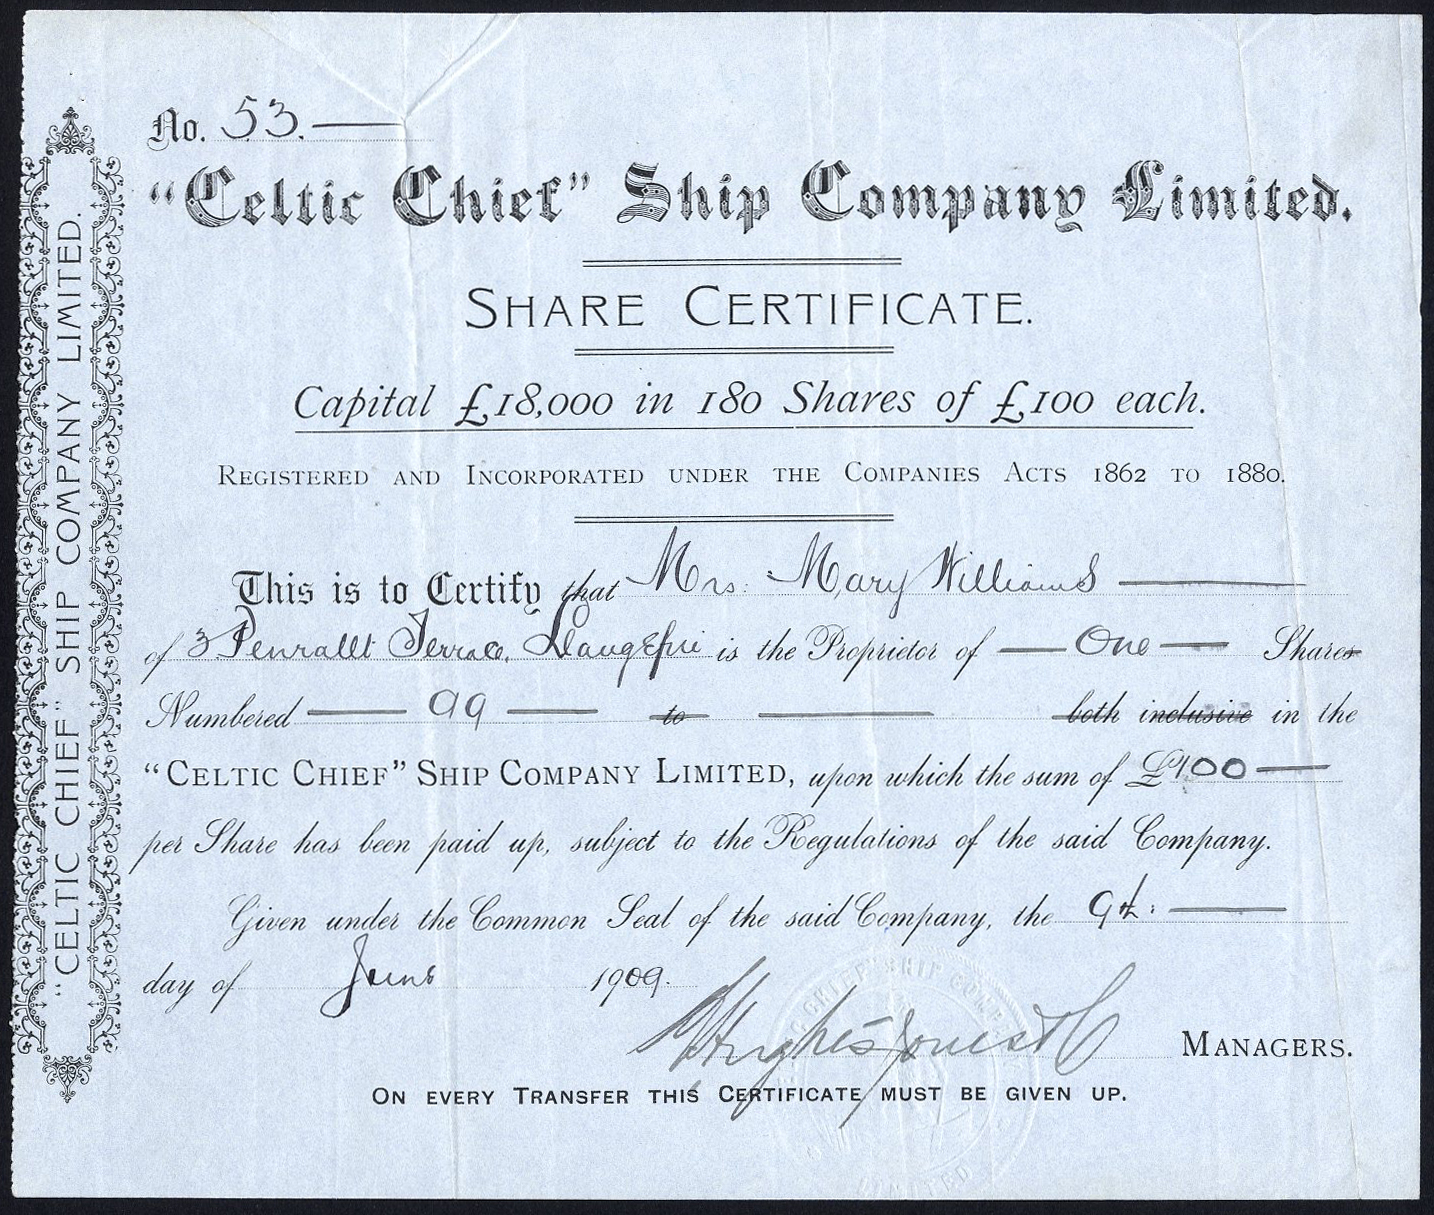 No. 53.
"Celtic Chief" Ship Company Limited.
SHARE CERTIFICATE.
Capital £18,000 in 180 Shares of £100 each.
REGISTERED AND INCORPORATED UNDER THE COMPANIES ACTS 1862 TO 1880.
This is to Certify that Mrs. Mary Williams
of 3 Penrallt Terrace, Llangefni is the Proprietor of One Shares
Numbered 99 to both inclusive in the
"CELTIC CHIEF" SHIP COMPANY LIMITED, upon which the sum of £100
per Share has been paid up, subject to the Regulations of the said Company.
Given under the Common Seal of the said Company, the 9th.
day of June 1909.
Hughes-Jones & Co MANAGERS.
ON EVERY TRANSFER THIS CERTIFICATE MUST BE GIVEN UP.
"CELTIC CHIEF" SHIP COMPANY LIMITED.